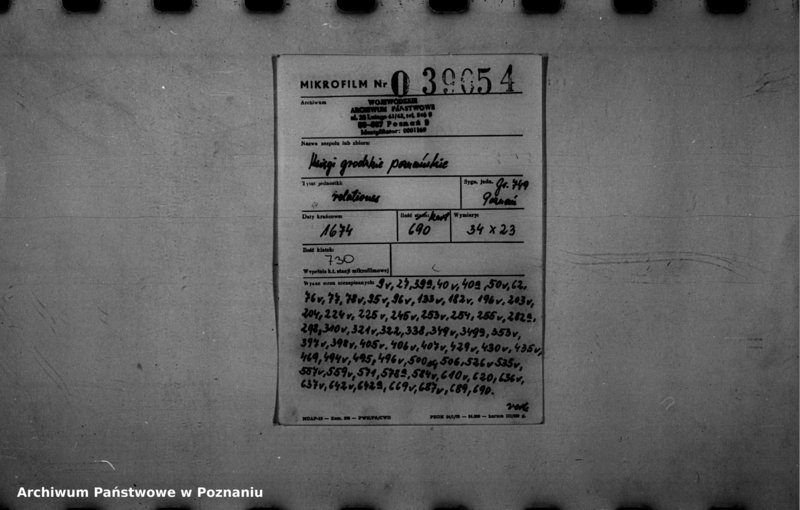 MIKROFILM Nr 0 39054
Archiwum
WOJEWÓDZKIE
ARCHIWUM PAŃSTWOWE
ul. 23 Lutego 41/43, tel. 546 8
60-967 Poznań 9
Identyfikator: 0001160
Nazwa zespołu lub zbioru:
Księgi grodzkie poznańskie
Tytuł jednostki:
relationes
Sygn. jedn. Gr. 749
Poznań
Daty krańcowe:
1674
Ilość kart
690
Wymiary:
34 x 23
Ilość klatek:
730
Wypełnia k.t. stacji mikrofilmowej
Wykaz stron niezapisanych: 9v, 27, 39a, 40v, 40a, 50v, 62,
76v, 77, 78v, 95v, 96v, 133v, 182v, 196v, 203v,
204, 224v, 225v, 245v, 253v, 254, 255v, 282a,
298, 310v, 321v, 322, 338, 349v, 349a, 353v,
397v, 398v, 405v, 406v, 407v, 429v, 430v, 435v,
469, 494v, 495, 496v, 500a, 506, 526v, 535v,
557v, 559v, 571, 578a, 584v, 610v, 620, 636v,
637v, 642v, 642a, 669v, 687v, 689, 690.
vert.
Archiwum Państwowe w Poznaniu